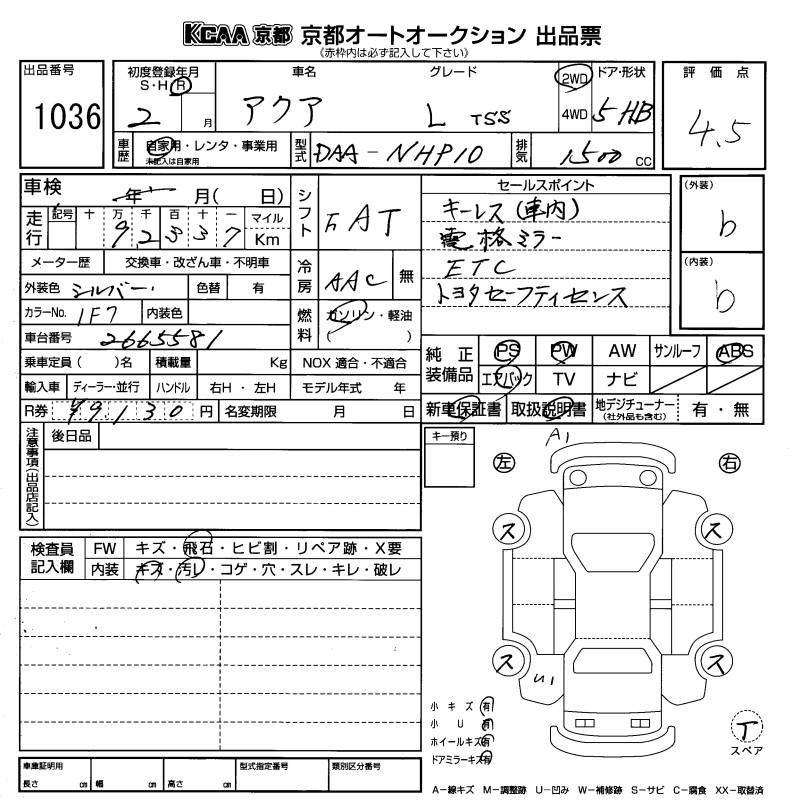 KCAA 京都 京都オートオークション 出品票
(赤枠内は必ず記入して下さい)
出品番号
1036
初度登録年月
S・H・R
2 月
車名
アクア
グレード
L TSS
2WD
4WD
ドア・形状
5 HB
評価点
4.5
車歴
自家用・レンタ・事業用
未記入は自家用
型式
DAA-NHP10
排気
1500 cc
車検
年 月( 日)
シフト
FAT
セールスポイント
キーレス(車内)
電格ミラー
ETC
トヨタセーフティセンス
(外装)
b
(内装)
b
走行
記号 十 万 千 百 十 一 マイル
9 2 3 3 7 Km
メーター歴 交換車・改ざん車・不明車
冷房
AAC 無
外装色 シルバー 色替 有
カラーNo. 1F7 内装色
燃料
ガソリン・軽油
( )
車台番号 2665581
乗車定員 ( )名 積載量 Kg NOX 適合・不適合
輸入車 ディーラー・並行 ハンドル 右H・左H モデル年式 年
R券 ¥9130 円 名変期限 月 日
純正装備品
PS PW AW サンルーフ ABS
エアバック TV ナビ
新車保証書 取扱説明書 地デジチューナー(社外品も含む) 有・無
注意事項(出品店記入)
後日品
キー預り
A1
左 右
ス ス
ス ス
U1
検査員記入欄
FW キズ・飛石・ヒビ割・リペア跡・X要
内装 キズ・汚レ・コゲ・穴・スレ・キレ・破レ
小キズ 有
小U 有
ホイールキズ 有
ドアミラーキズ 有
T
スペア
車庫証明用
長さ cm 幅 cm 高さ cm
型式指定番号
類別区分番号
A-線キズ M-調整跡 U-凹み W-補修跡 S-サビ C-腐食 XX-取替済